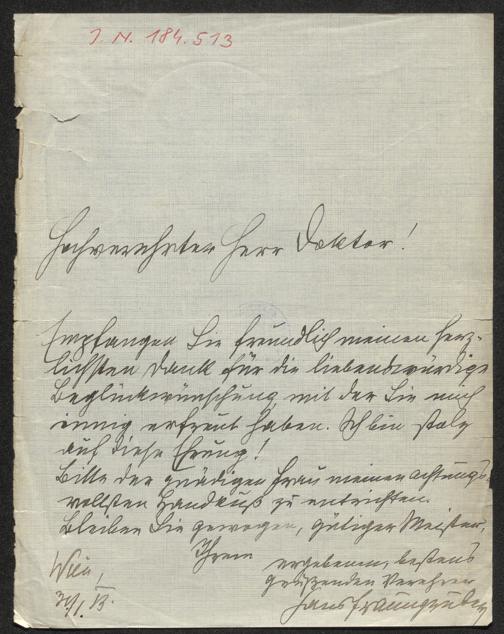 J. N. 184.513
Hochverehrter Herr Doktor!
Empfangen Sie freundlich meinen herz-
lichsten Dank für die liebenswürdige
Beglückwünschung mit der Sie mich
innig erfreut haben. Ich bin stolz
auf diese Ehrung!
Bitte der gnädigen Frau meinen achtungs-
vollsten Handkuß zu entrichten.
Bleiben Sie gewogen, gütiger Meister,
Ihrem
ergebenen, bestens
grüßenden Verehrer
Hans Fraungruber
Wien,
30/I. 13.